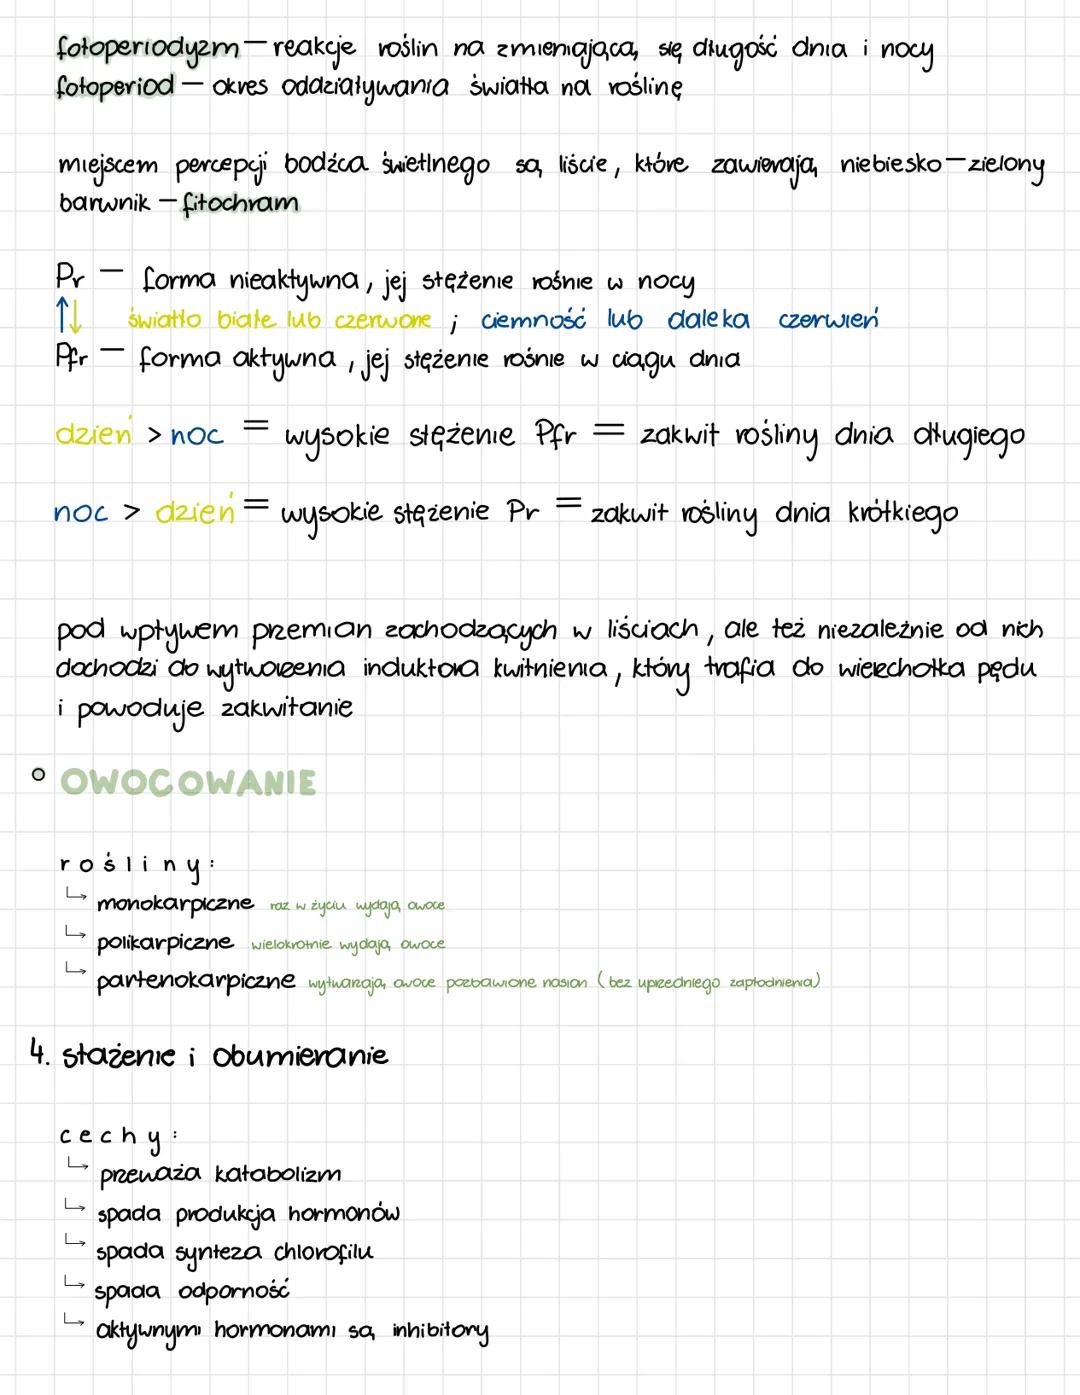 fotoperiodyzm — reakcje roślin na zmieniającą się długość dnia i nocy
fotoperiod — okres oddziaływania światła na roślinę
miejscem percepcji bodźca świetlnego są liście, które zawierają niebiesko-zielony
barwnik — fitochram
Pr — forma nieaktywna, jej stężenie rośnie w nocy
↑↓ światło białe lub czerwone ; ciemność lub daleka czerwień
Pfr — forma aktywna, jej stężenie rośnie w ciągu dnia
dzień > noc = wysokie stężenie Pfr = zakwit rośliny dnia długiego
noc > dzień = wysokie stężenie Pr = zakwit rośliny dnia krótkiego
pod wpływem przemian zachodzących w liściach, ale też niezależnie od nich
dochodzi do wytworzenia induktora kwitnienia, który trafia do wierzchołka pędu
i powoduje zakwitanie
° OWOCOWANIE
rośliny:
↳ monokarpiczne raz w życiu wydają owoce
↳ polikarpiczne wielokrotnie wydają owoce
↳ partenokarpiczne wytwarzają owoce pozbawione nasion (bez uprzedniego zapłodnienia)
4. stażenie i obumieranie
cechy:
↳ przeważa katabolizm
↳ spada produkcja hormonów
↳ spada synteza chlorofilu
↳ spada odporność
↳ aktywnymi hormonami są inhibitory